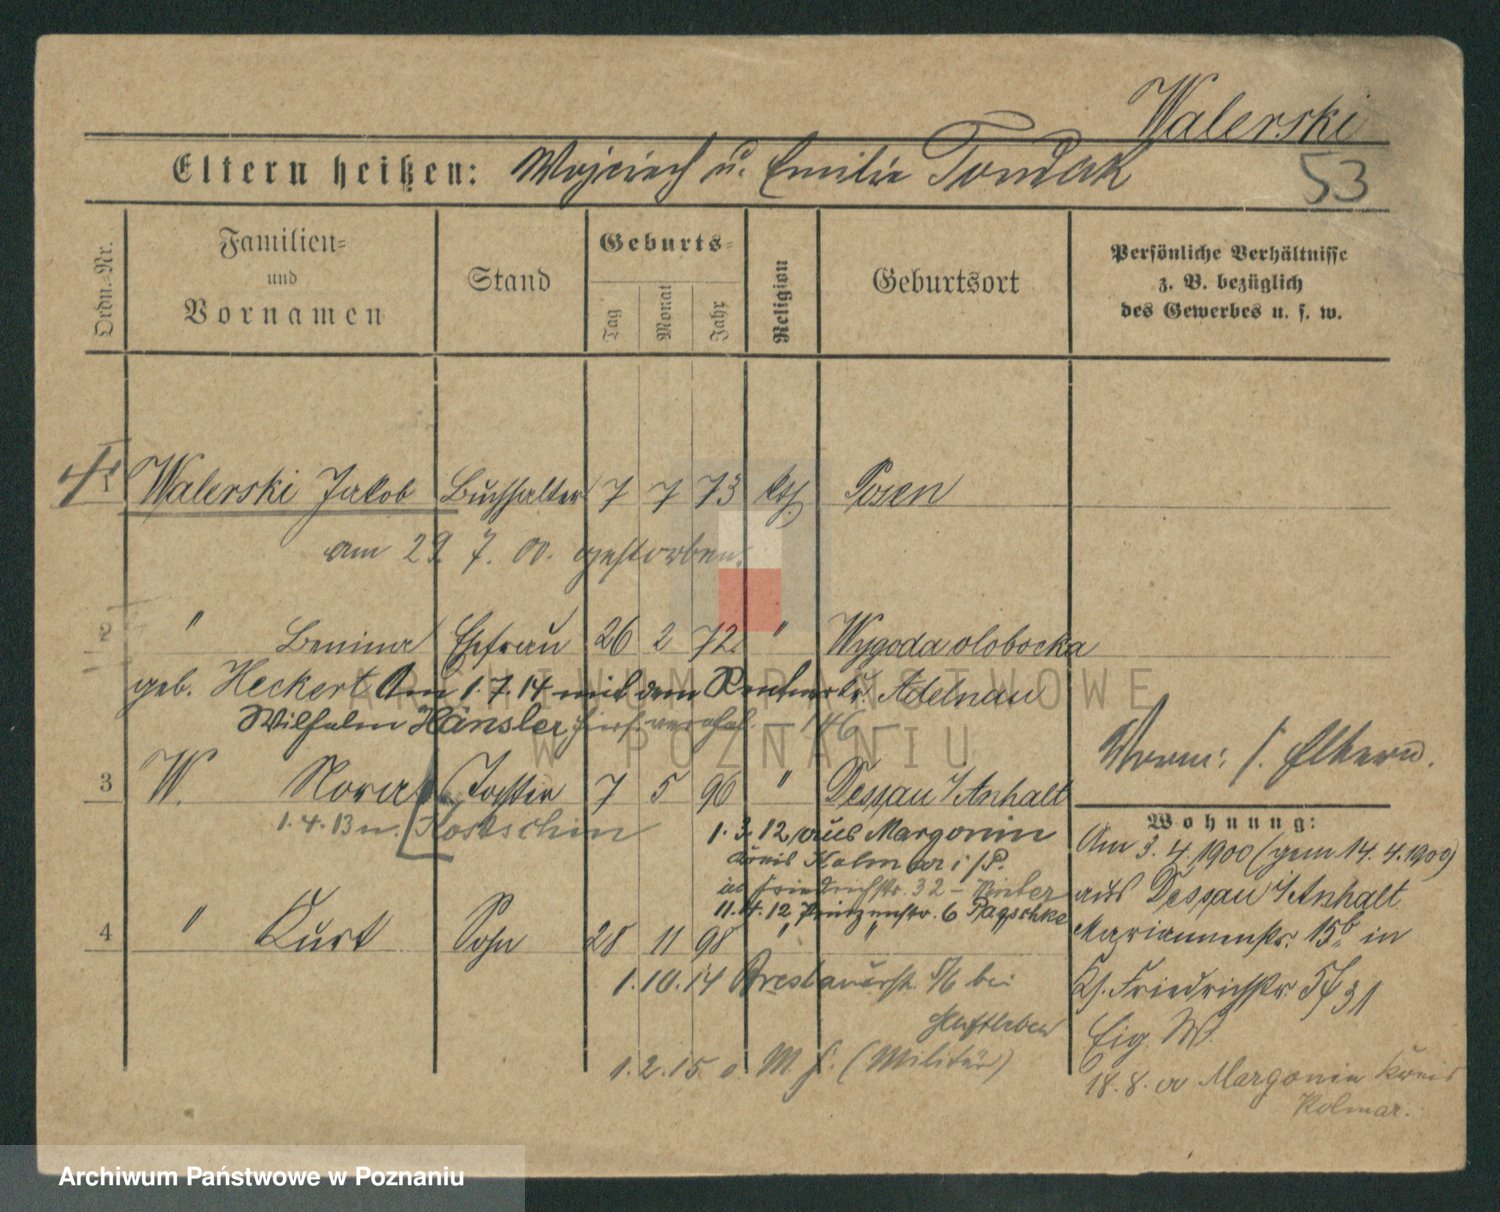 Walerski
Eltern heißen: Wojciech u. Emilie Tomdak
53
Ordn.-Nr.
Familien-
und
Vornamen
Stand
Geburts-
Tag
Monat
Jahr
Religion
Geburtsort
Persönliche Verhältnisse
z. B. bezüglich
des Gewerbes u. s. w.
1 Walerski Jakob Buchhalter 7 7 73 kth Posen
am 29. 7. 00. gestorben.
2 " Benina Ehefrau 26 2 72 " Wygoda olobocka
geb. Heckert Am 1. 7. 14 mit dem Adelnau
Wilhelm Hänsler
Verm: s. Eltern.
3 W. Nora Tochter 7 5 96 " Dessau i/Anhalt
1. 4. 13 n. Kostschin
1. 3. 12 aus Margonin
Kreis Kolmar i/P.
Friedrichstr. 32 - Winter
11. 4. 12 Prinzenstr. 6
4 " Kurt Sohn 28 11 98 " "
1. 10. 14 Breslauerstr. 5/6 bei
Haftleben
1. 2. 15 (Militär)
Wohnung:
Am 3. 4. 1900 (gem 14. 4. 1900)
aus Dessau i/Anhalt
Mariannenstr. 15b in
Friedrichstr. 31
Eig. W.
18. 8. a Margonin Kreis
Kolmar.
ARCHIWUM PAŃSTWOWE
W POZNANIU
Archiwum Państwowe w Poznaniu